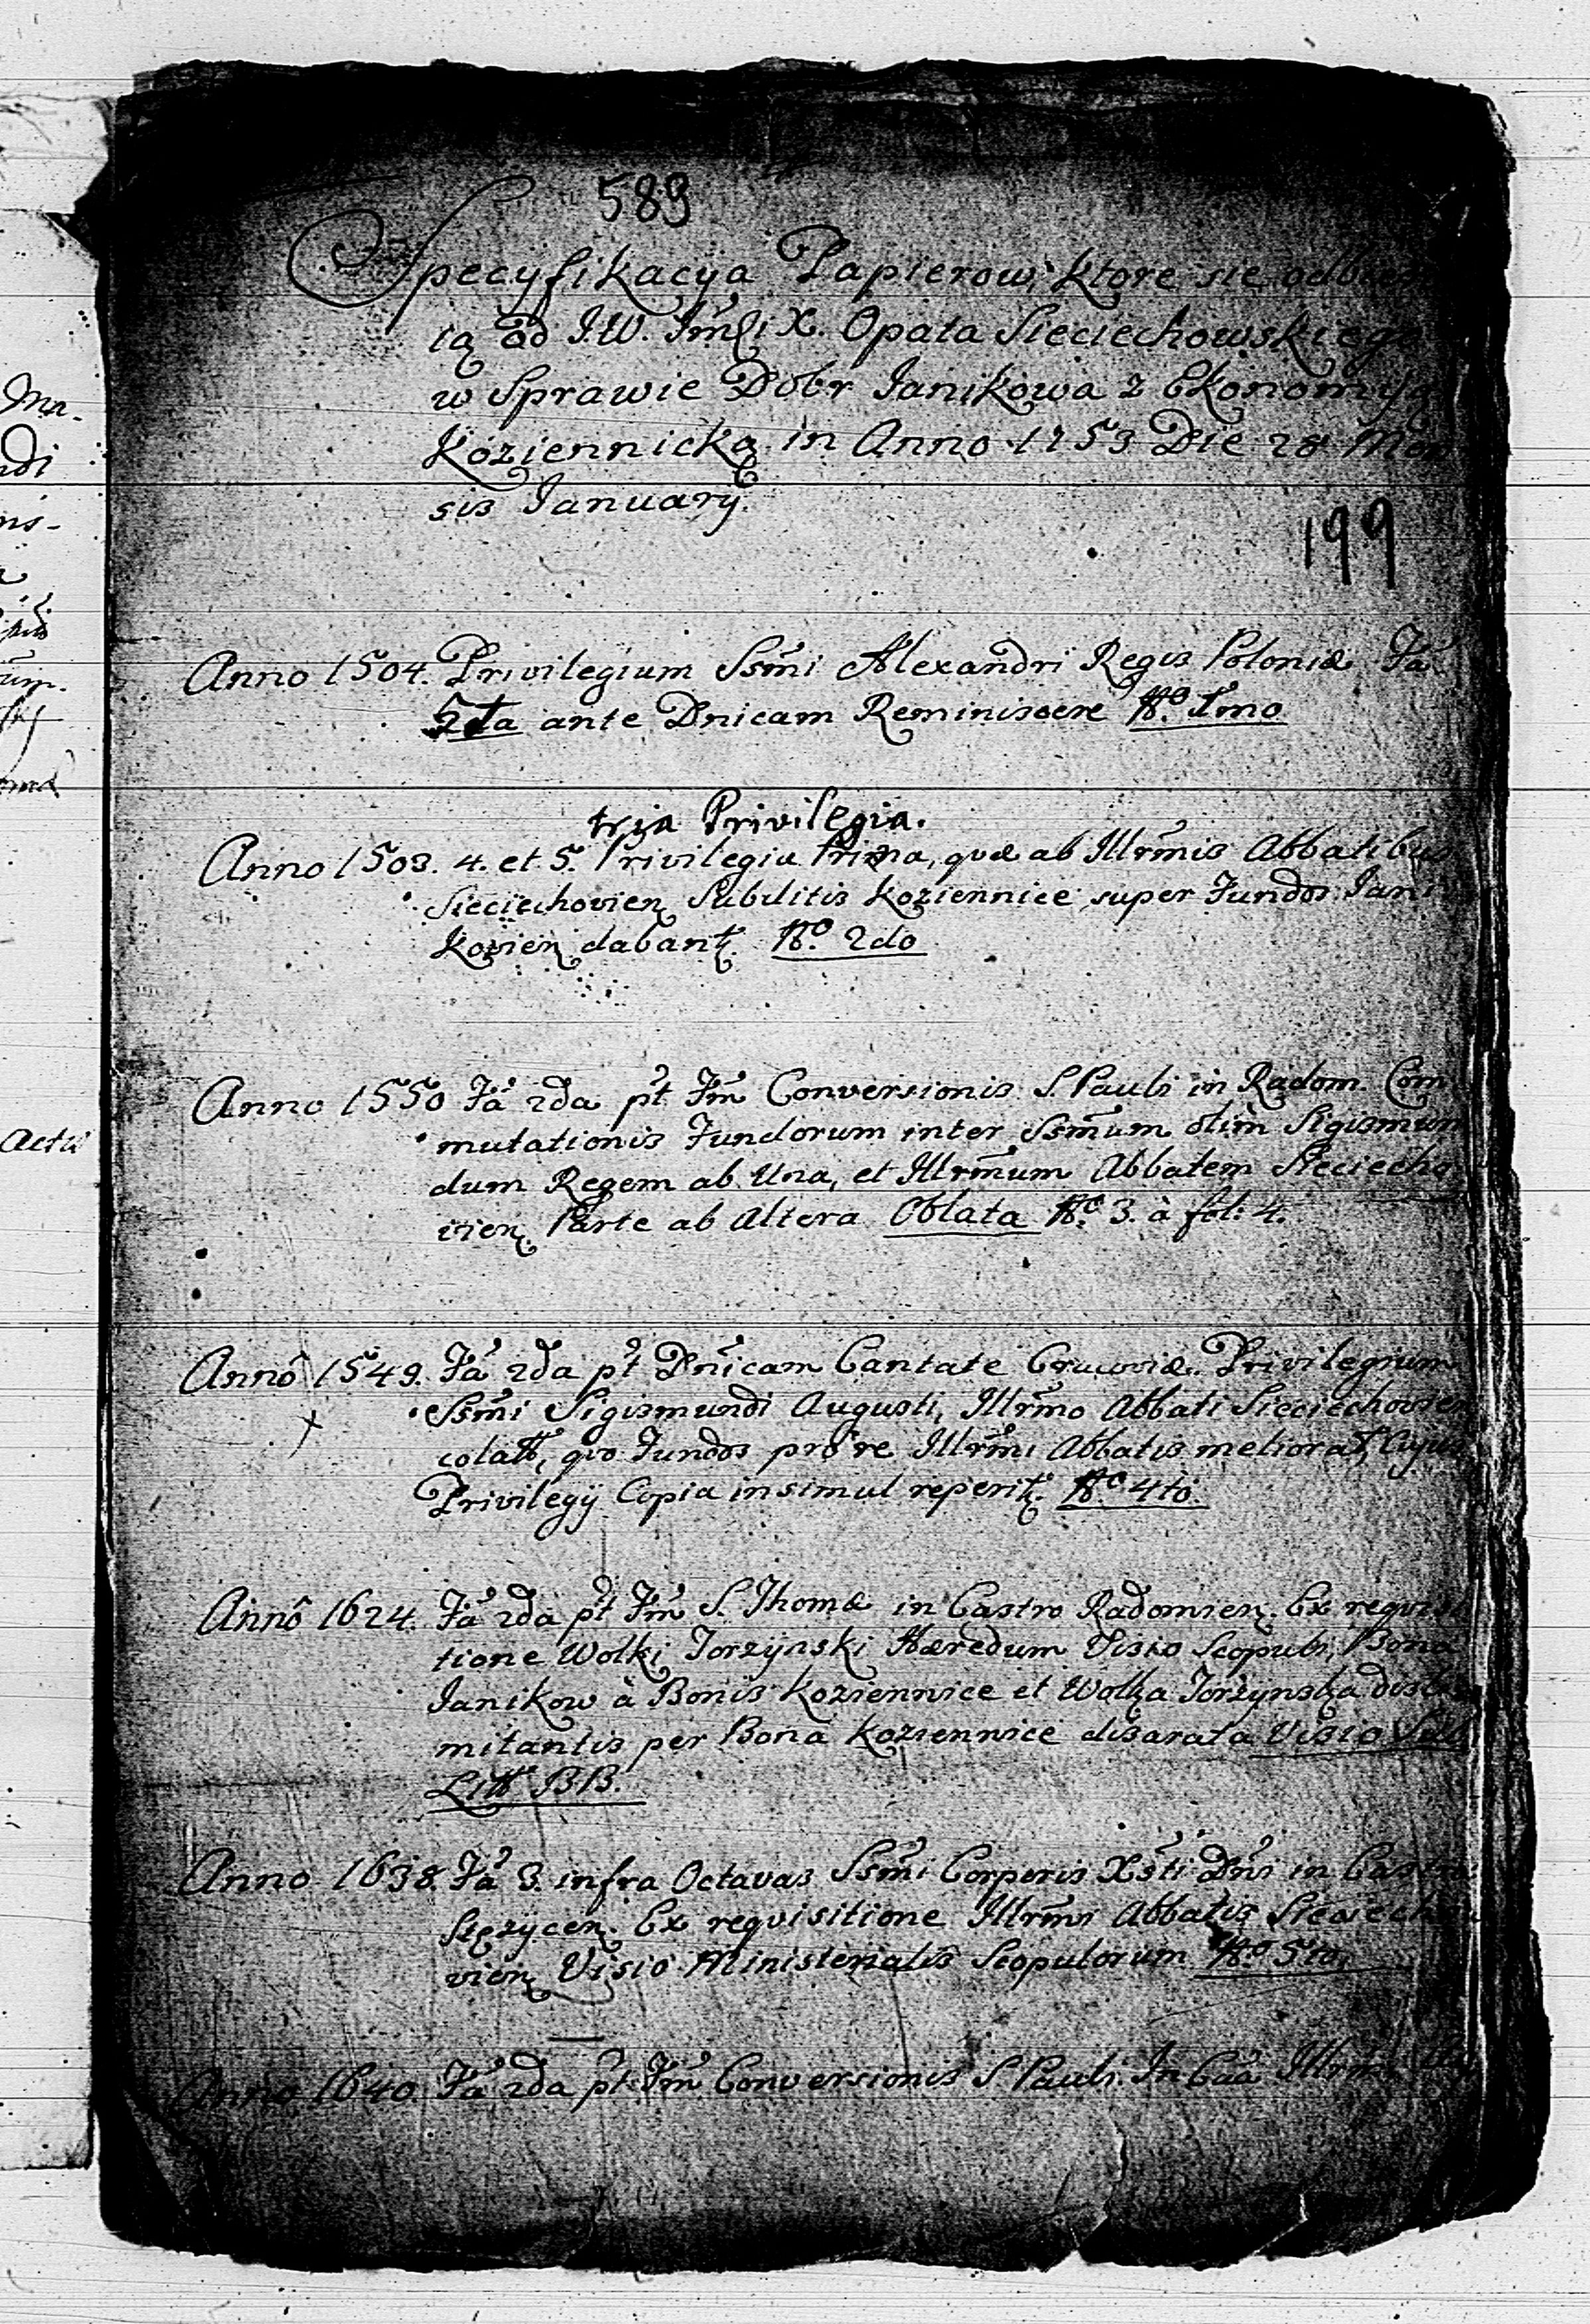 589
Specyfikacya Papierow, ktore się
ią od J.W. Jmści X. Opata Sieciechowskiego
w Sprawie Dobr Janikowa z Ekonomyą
Koziennicką in Anno 1753 Die 28 Men
sis January.
199
Anno 1504. Privilegium Ssmi Alexandri Regis Poloniæ Fa
5ta ante Dnicam Reminiscere No. Imo
tria Privilegia.
Anno 1503. 4. et 5. Privilegia Prima, quæ ab Illrmis Abbatibus
Sieciechovien Subditis Koziennice super Fundos Jani
Kovien dabant. No. 2do
Anno 1550 Fa 2da pt Fm Conversionis S. Pauli in Radom. Com
mutationis Fundorum inter Ssmum olim Sigismun
dum Regem ab Una, et Illrmum Abbatem Sieciecho
vien Parte ab Altera Oblata No. 3. à fol: 4.
Annô 1549. Fa 2da pt Dnicam Cantate Cracoviæ. Privilegium
Ssmi Sigismundi Augusti, Illrmo Abbati Sieciechovien
colatt, quo Fundos pro re Illrmi Abbatis meliorat, Cujus
Privilegij Copia insimul reperit. No. 4to.
Annô 1624. Fa 2da pt Fm S. Thomæ in Castro Radomien. Ex requisi
tione Wolki Torzynski Hæredum Visio Scopuli, Bona
Janikow à Bonis Koziennice et Wolka Torzynska
mitantis per Bona Koziennice disarata Visio Sub
Litt BB.
Anno 1638. Fa 3. infra Octavas Ssmi Corporis Xsti Dni in Castro
Stęzycen. Ex requisitione Illrmi Abbatis Sieciecho
vien Visio Ministerialis Scopulorum No. 5to.
Anno 1640. Fa 2da pt Fm Conversionis S Pauli. In Cua Illrmi
Actu